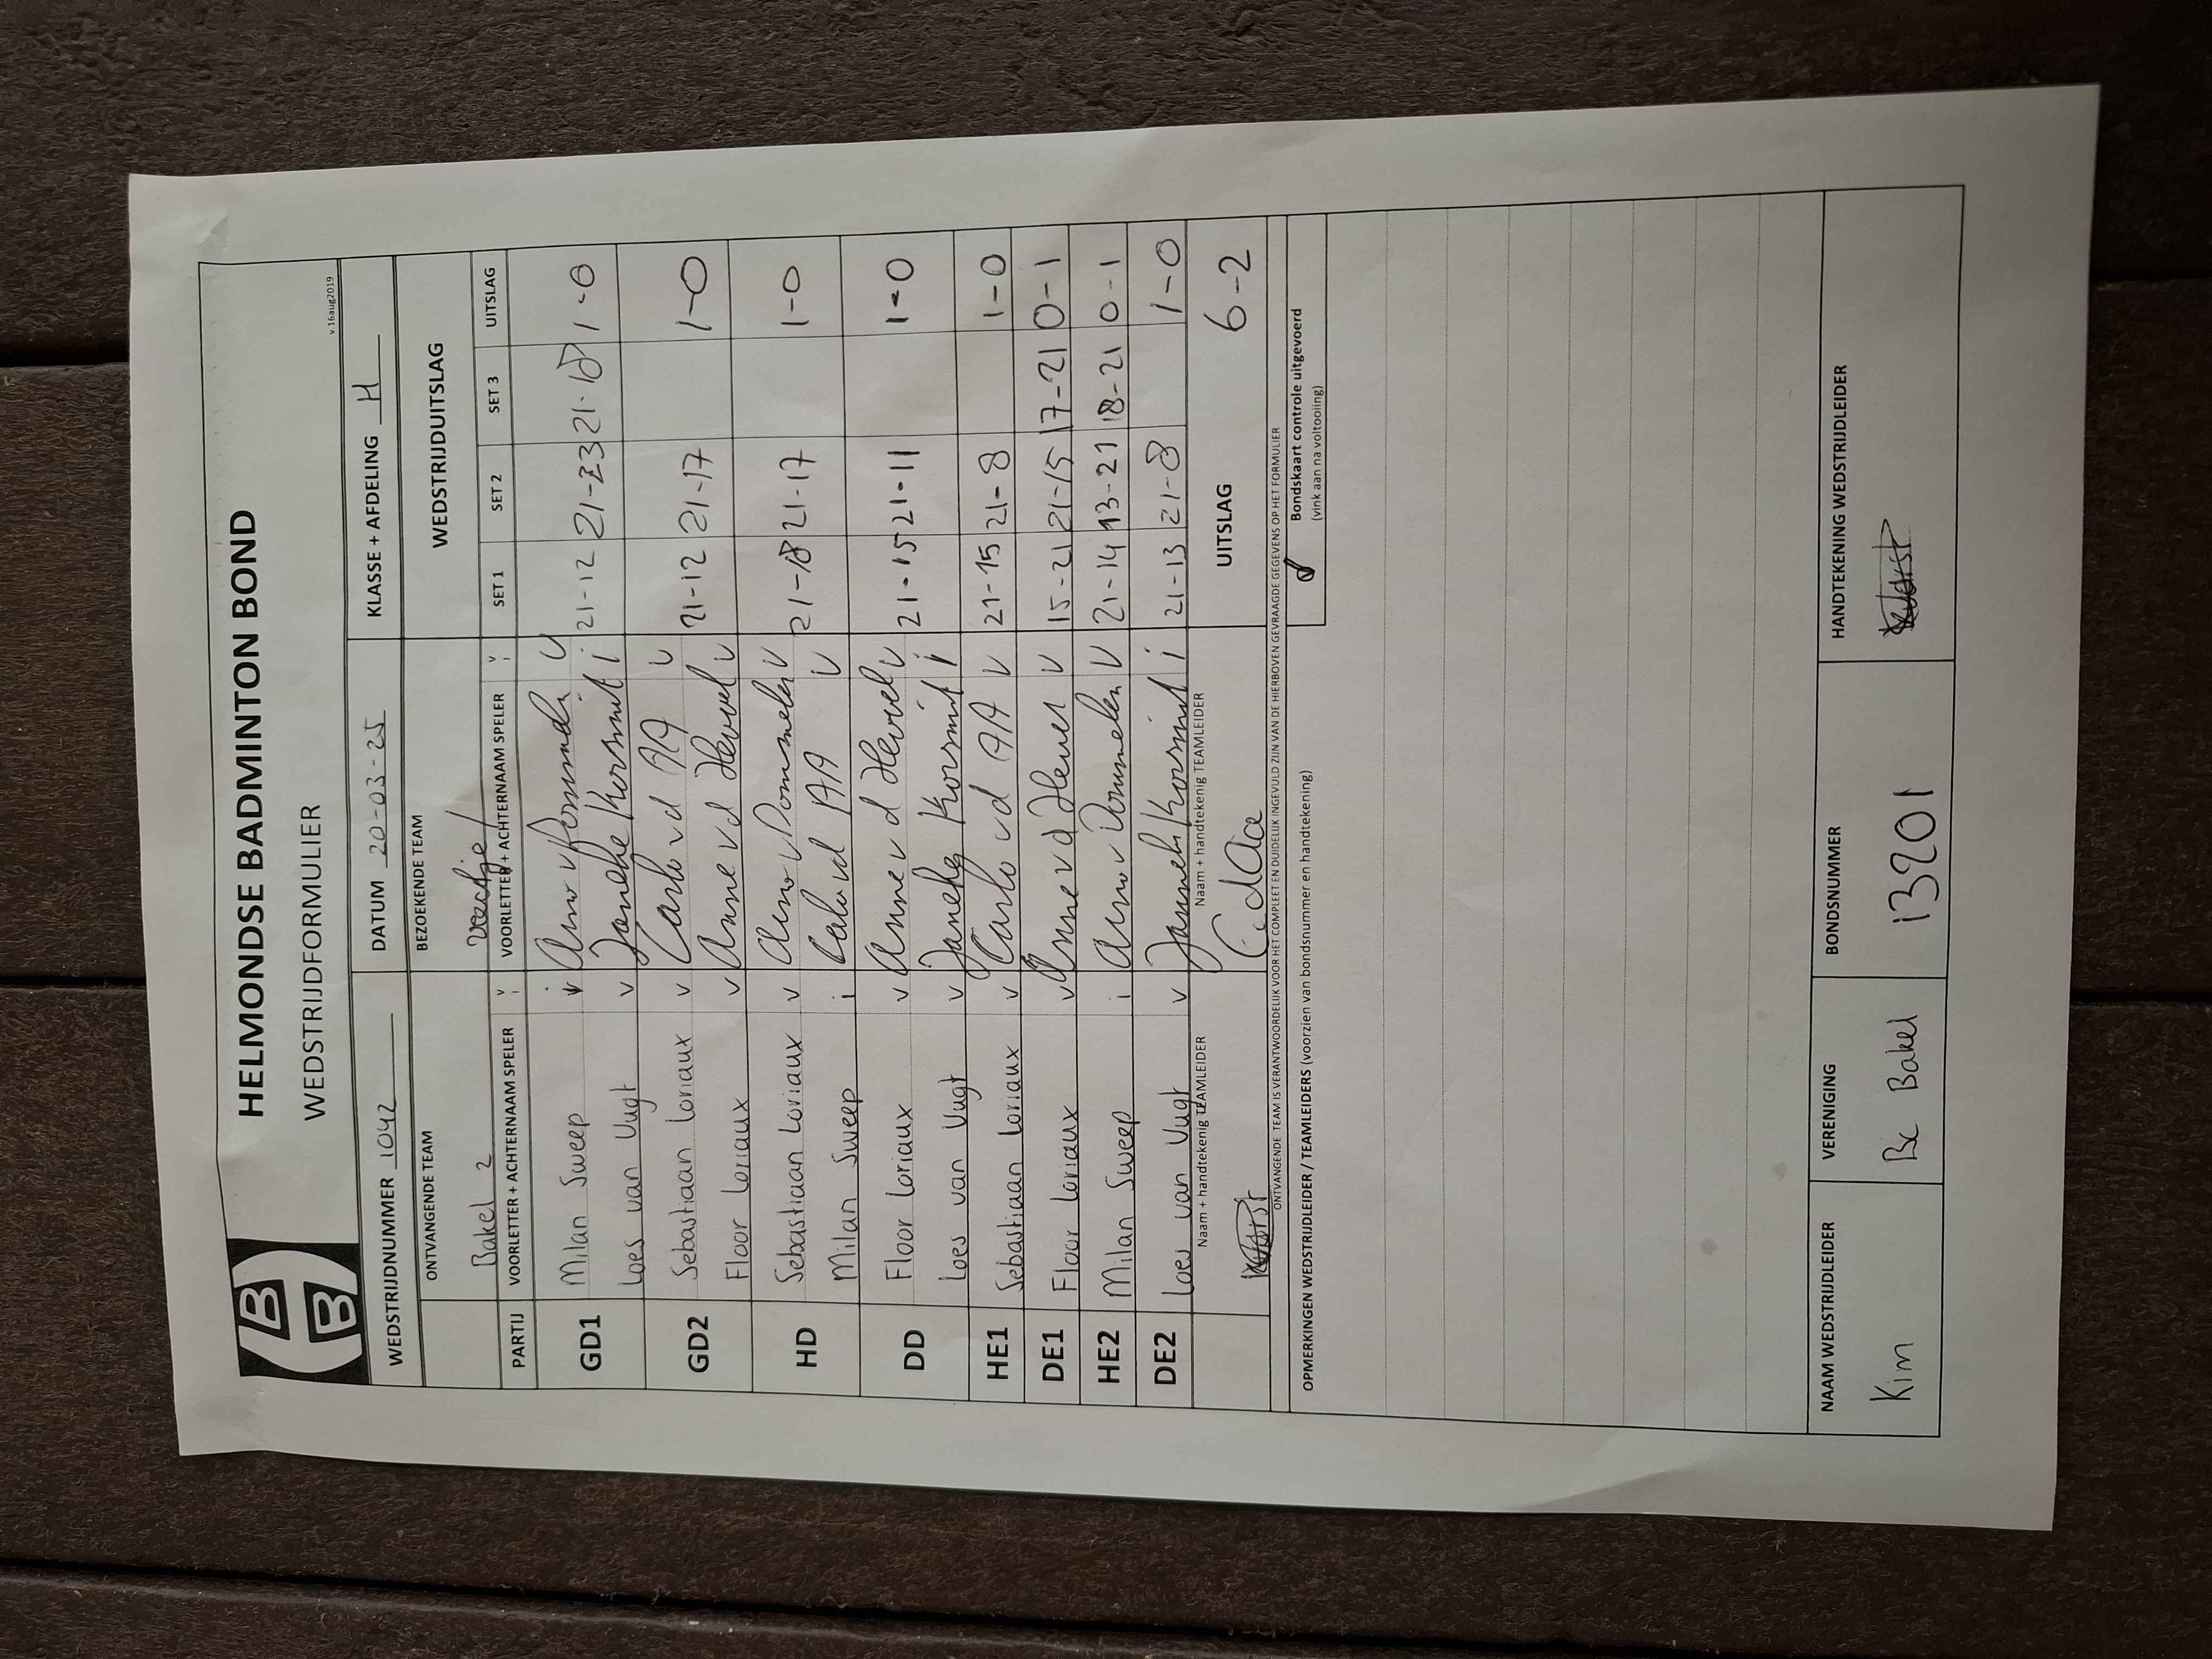 HELMONDSE BADMINTON BOND
WEDSTRIJDFORMULIER
v.16aug2019
WEDSTRIJDNUMMER 1042 DATUM 20-03-25 KLASSE + AFDELING H
ONTVANGENDE TEAM BEZOEKENDE TEAM WEDSTRIJDUITSLAG
Bakel 2
PARTIJ VOORLETTER + ACHTERNAAM SPELER V I VOORLETTER + ACHTERNAAM SPELER V I SET 1 SET 2 SET 3 UITSLAG
GD1 Milan Sweep i Arno v 21-12 21-23 21-18 1-0
Loes van Vugt v Janneke Korsmit i
GD2 Sebastiaan Loriaux v Carlo vd AA v 21-12 21-17 1-0
Floor Loriaux v Anne vd Heuvel v
HD Sebastiaan Loriaux v Arno v Dommelen v 21-18 21-17 1-0
Milan Sweep i Carlo vd AA v
DD Floor Loriaux v Anne vd Heuvel v 21-15 21-11 1-0
Loes van Vugt v Janneke Korsmit i
HE1 Sebastiaan Loriaux v Carlo vd AA v 21-15 21-8 1-0
DE1 Floor Loriaux v Anne vd Heuvel v 15-21 21-15 17-21 0-1
HE2 Milan Sweep i Arno v Dommelen v 21-14 13-21 18-21 0-1
DE2 Loes van Vugt v Janneke Korsmit i 21-13 21-8 1-0
Naam + handtekenig TEAMLEIDER Naam + handtekenig TEAMLEIDER UITSLAG 6-2
ONTVANGENDE TEAM IS VERANTWOORDELIJK VOOR HET COMPLEET EN DUIDELIJK INGEVULD ZIJN VAN DE HIERBOVEN GEVRAAGDE GEGEVENS OP HET FORMULIER
OPMERKINGEN WEDSTRIJDLEIDER / TEAMLEIDERS (voorzien van bondsnummer en handtekening)
Bondskaart controle uitgevoerd
(vink aan na voltooiing)
NAAM WEDSTRIJDLEIDER VERENIGING BONDSNUMMER HANDTEKENING WEDSTRIJDLEIDER
Kim Bc Bakel 13201